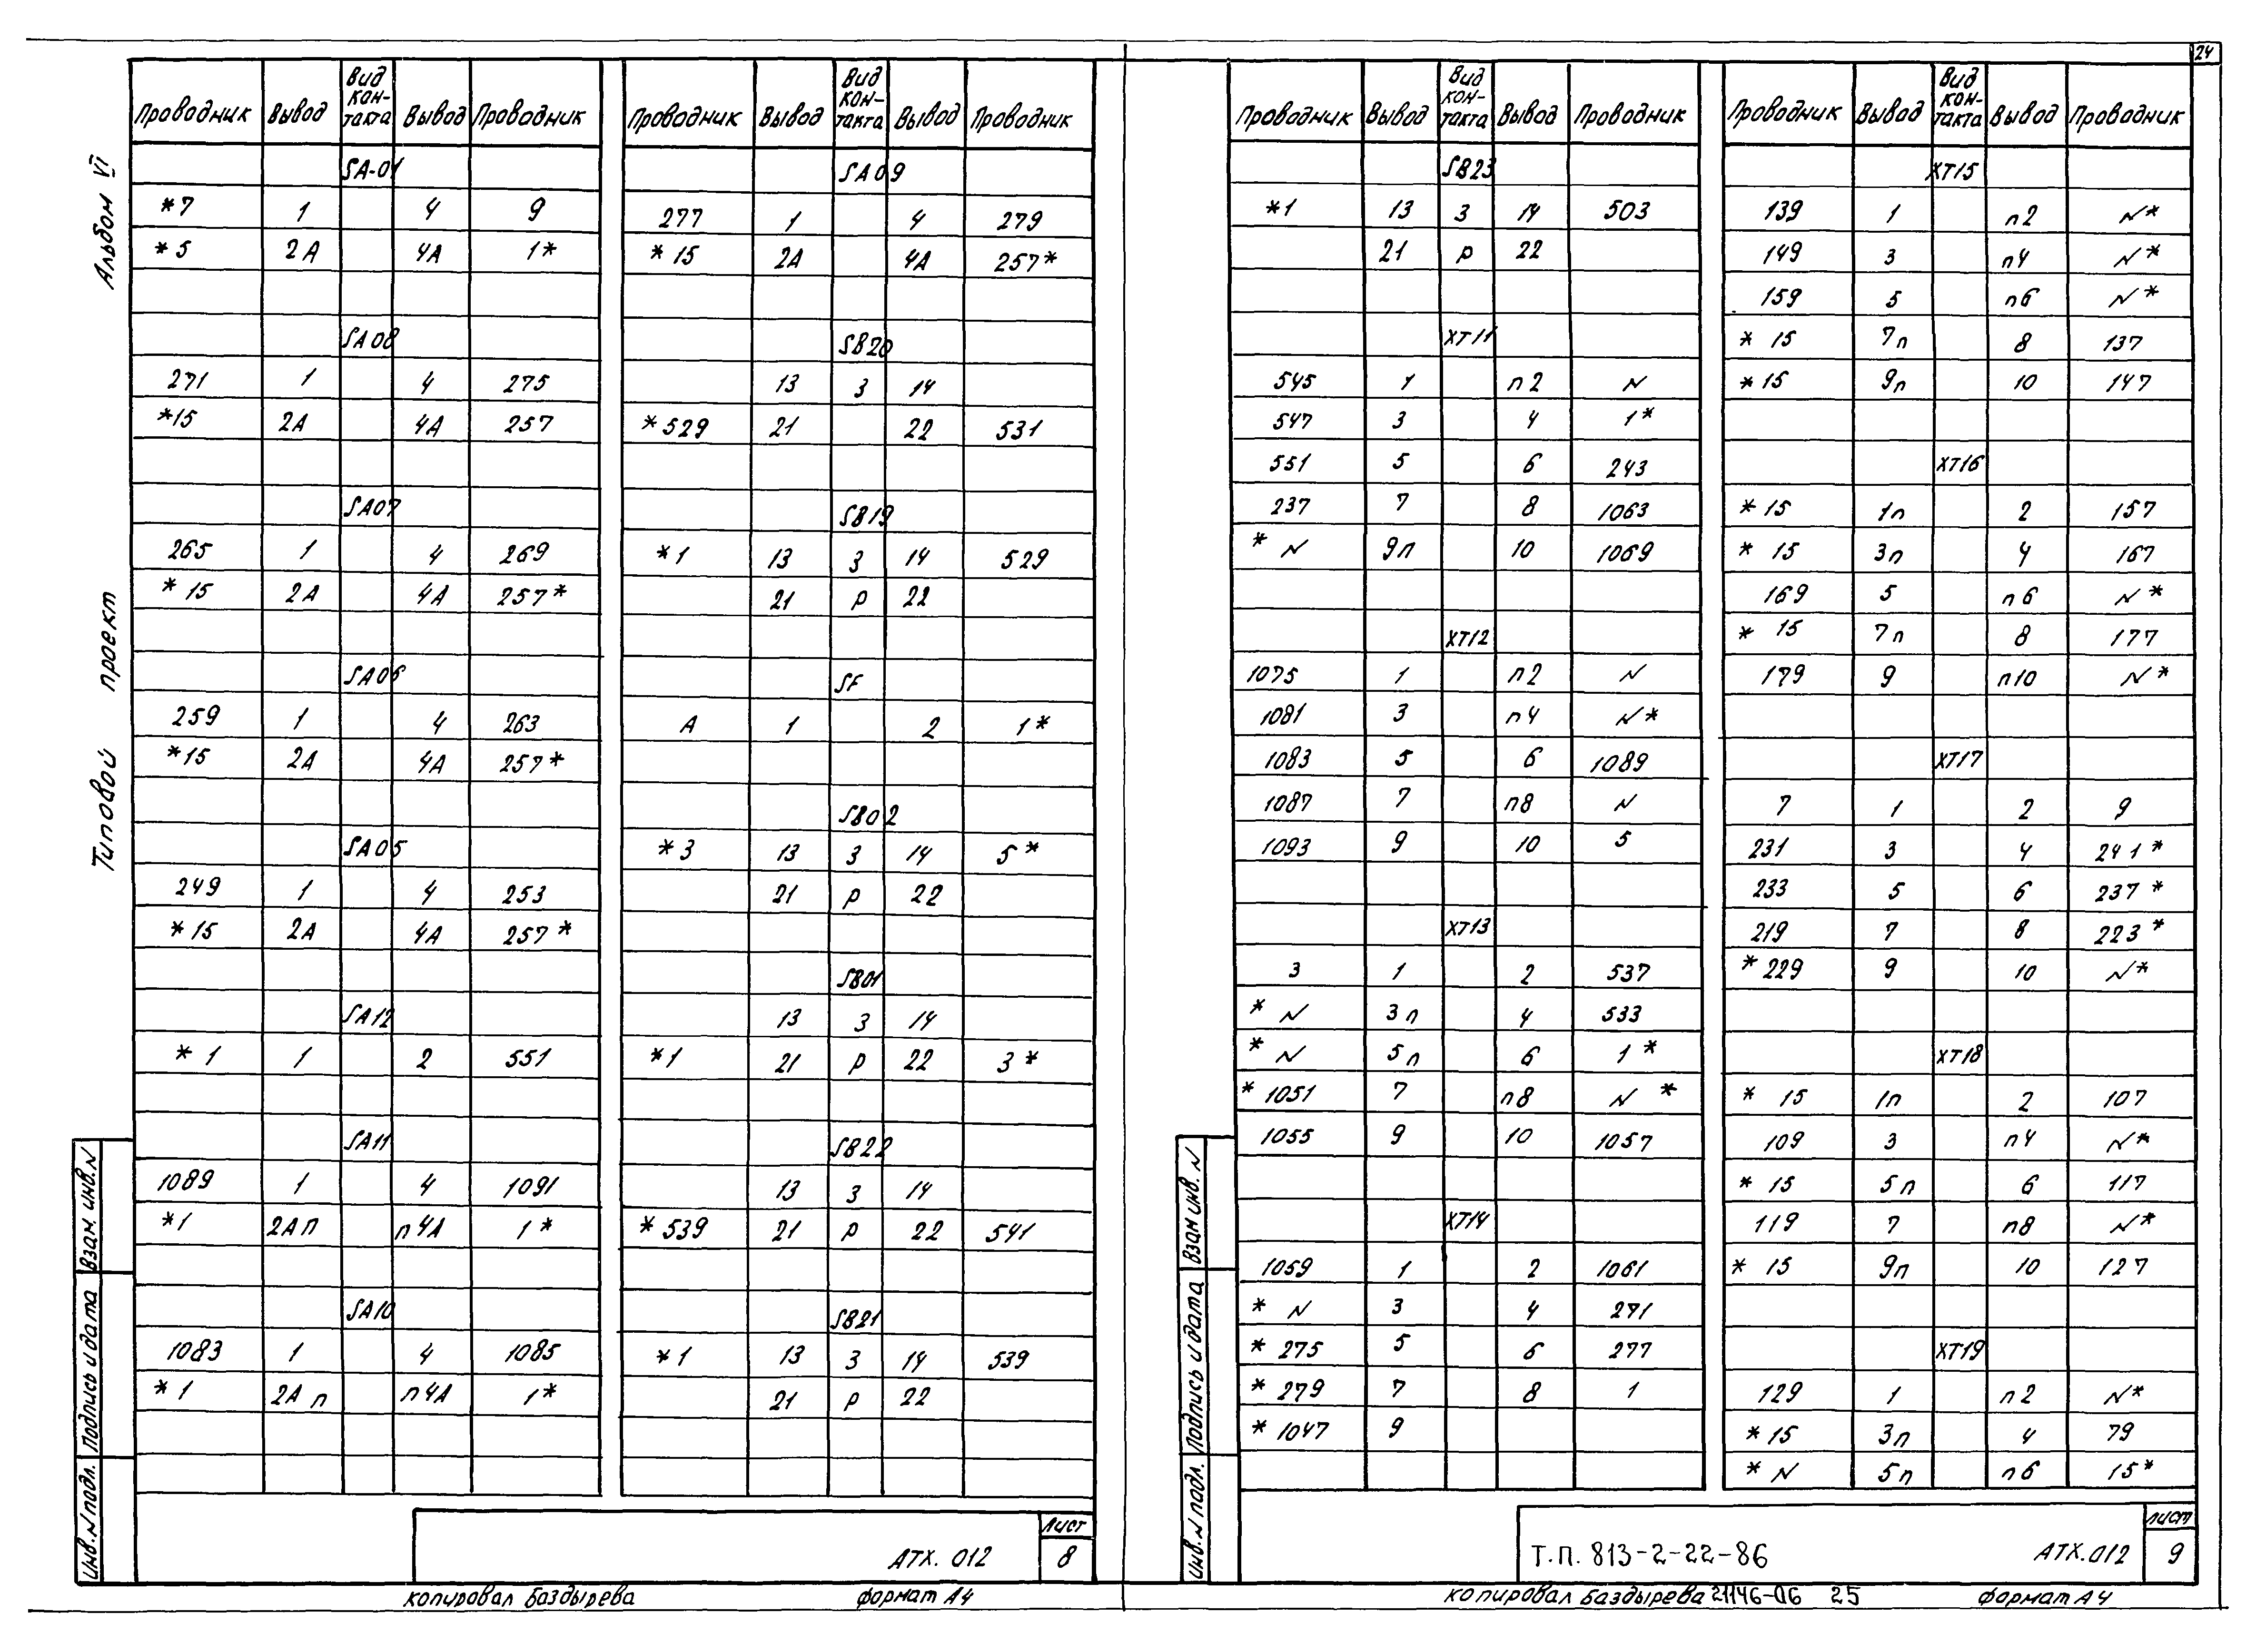 24
Альбом VI
Типовой проект
Проводник Вывод Вид кон-такта Вывод Проводник
SA-01
*7 1 4 9
*5 2А 4А 1*
SA08
271 1 4 275
*15 2А 4А 257
SA07
265 1 4 269
*15 2А 4А 257*
SA06
259 1 4 263
*15 2А 4А 257*
SA05
249 1 4 253
*15 2А 4А 257*
SA12
*1 1 2 551
SA11
1089 1 4 1091
*1 2Ап п4А 1*
SA10
1083 1 4 1085
*1 2Ап п4А 1*
Проводник Вывод Вид кон-такта Вывод Проводник
SA09
277 1 4 279
*15 2А 4А 257*
SB20
13 З 14
*529 21 22 531
SB19
*1 13 З 14 529
21 Р 22
SF
А 1 2 1*
SB02
*3 13 З 14 5*
21 Р 22
SB01
13 З 14
*1 21 Р 22 3*
SB22
13 З 14
*539 21 Р 22 541
SB21
*1 13 З 14 539
21 Р 22
Взам. инв. N
Подпись и дата
Инв. N подл.
АТХ. 012
Лист
8
копировал Баздырева
формат А4
Проводник Вывод Вид кон-такта Вывод Проводник
SB23
*1 13 З 14 503
21 Р 22
XT11
545 1 п2 N
547 3 4 1*
551 5 6 243
237 7 8 1063
*N 9п 10 1069
XT12
1075 1 п2 N
1081 3 п4 N*
1083 5 6 1089
1087 7 п8 N
1093 9 10 5
XT13
3 1 2 537
*N 3п 4 533
*N 5п 6 1*
*1051 7 п8 N*
1055 9 10 1057
XT14
1059 1 2 1061
*N 3 4 271
*275 5 6 277
*279 7 8 1
*1047 9
Проводник Вывод Вид кон-такта Вывод Проводник
XT15
139 1 п2 N*
149 3 п4 N*
159 5 п6 N*
*15 7п 8 137
*15 9п 10 147
XT16
*15 1п 2 157
*15 3п 4 167
169 5 п6 N*
*15 7п 8 177
179 9 п10 N*
XT17
7 1 2 9
231 3 4 241*
233 5 6 237*
219 7 8 223*
*229 9 10 N*
XT18
*15 1п 2 107
109 3 п4 N*
*15 5п 6 117
119 7 п8 N*
*15 9п 10 127
XT19
129 1 п2 N*
*15 3п 4 79
*N 5п п6 15*
Взам. инв. N
Подпись и дата
Инв. N подл.
Т.П. 813-2-22-86
АТХ.012
Лист
9
копировал Баздырева 21146-06 25
формат А4